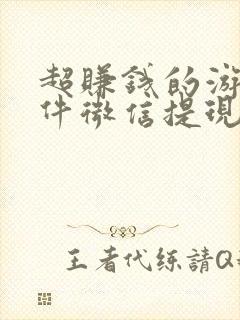 超賺錢的游
件微信提現
王者代练請Q